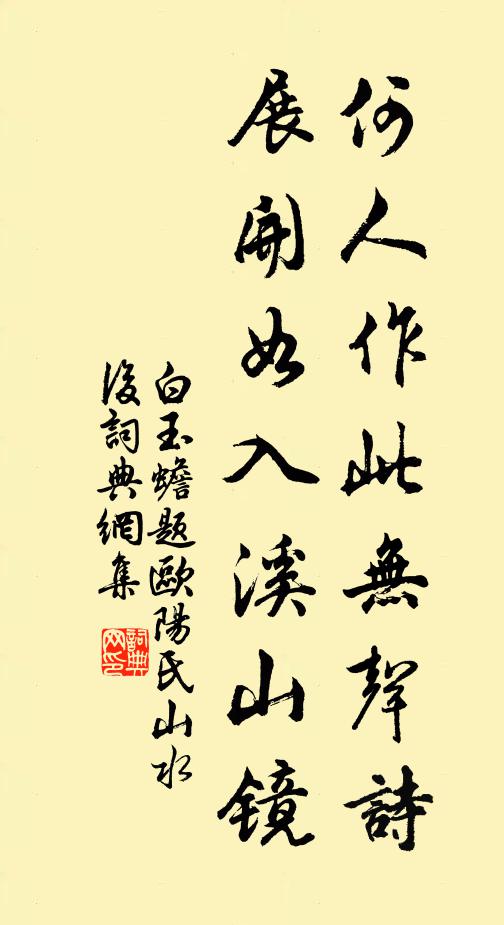 何人作此無聲詩
展開如入溪山鏡
白玉蟾題歐陽氏山水
後詞典網集
詞典
网印